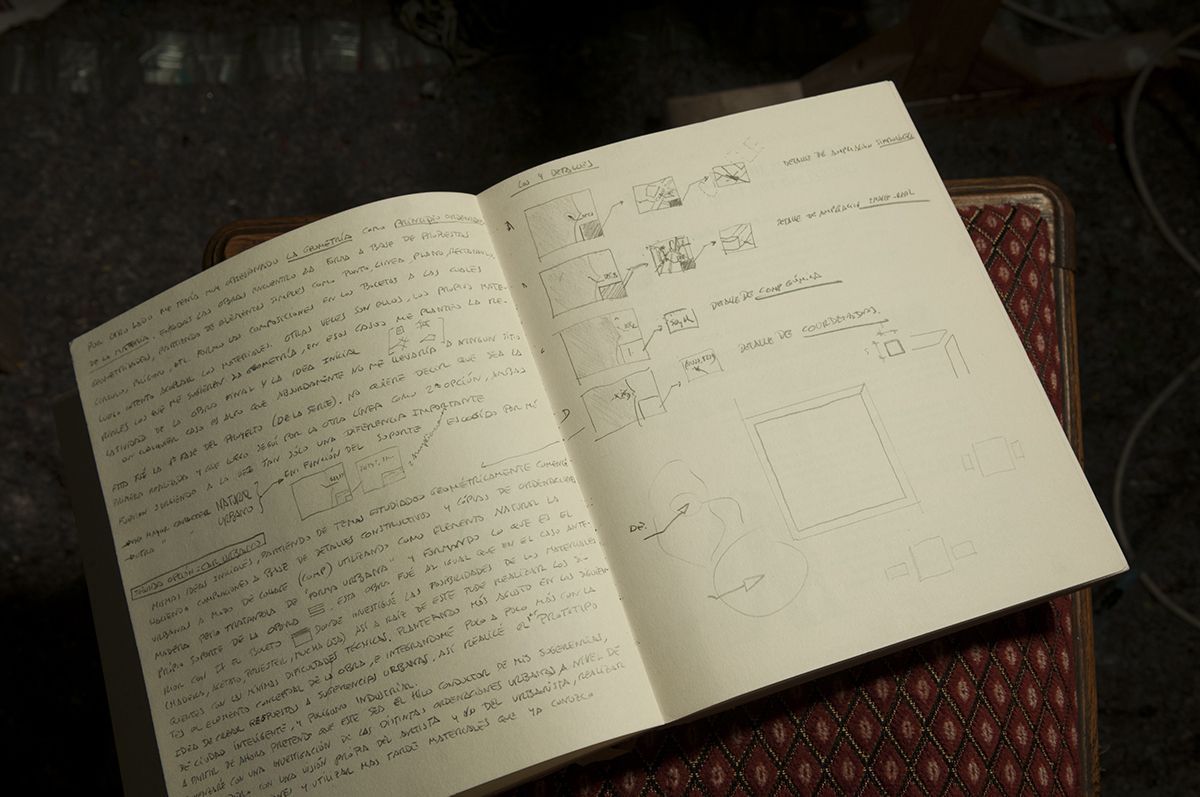 POR OTRO LADO ME TENÍA MUY OBSESIONADO LA GEOMETRÍA COMO PRINCIPIO ORDENADOR
DE LA MATERIA. TODAS LAS OBRAS ENCUENTRO LA FORMA A BASE DE PROPUESTAS
GEOMETRIZADAS, PARTIENDO DE ELEMENTOS SIMPLES COMO PUNTO, LINEA, PLANO, RECTANGULO,
CÍRCULO, POLÍGONO, ETC. FORMO LAS COMPOSICIONES EN LOS BOCETOS A LAS CUALES
LUEGO INTENTO ACOPLAR LOS MATERIALES. OTRAS VECES SON ELLOS, LOS PROPIOS MATE-
RIALES LOS QUE ME SUGIEREN LA GEOMETRÍA, EN ESOS CASOS ME PLANTEO LA RE-
LATIVIDAD DE LA OBRA FINAL Y LA IDEA INICIAL
EN CUALQUIER CASO ES ALGO QUE ABSURDAMENTE NO ME LLEVARÍA A NINGUN SITIO
ESTA FUÉ LA 1ª FASE DEL PROYECTO (DE LA SERIE). NO QUIERE DECIR QUE SEA LA
PRIMERA REALIZADA Y QUE LUEGO SEGUÍ POR LA OTRA LÍNEA COMO 2ª OPCIÓN, AMBAS
FUERON SURGIENDO A LA VEZ TAN SÓLO UNA DIFERENCIA IMPORTANTE
DE MAYOR CARACTER NATURAL EN FUNCIÓN DEL SOPORTE ESCOGIDO POR MÍ
OTRA " " URBANO
SEGUNDA OPCION: CAR. URBANO
MISMAS IDEAS INICIALES, PARTIENDO DE TEMAS ESTUDIADOS GEOMÉTRICAMENTE COMENCÉ
HACIENDO COMPOSICIONES A BASE DE DETALLES CONSTRUCTIVOS Y COPIAS DE ORDENACIONES
URBANAS A MODO DE COLLAGE (COMP) UTILIZANDO COMO ELEMENTO NATURAL LA
MADERA PERO TRATANDOLA DE "FORMA URBANA" Y FORMANDO LO QUE ES EL
PROPIO SOPORTE DE LA OBRA. ESTA OBRA FUÉ AL IGUAL QUE EN EL CASO ANTE-
RIOR CON EL BOCETO DONDE INVESTIGUÉ LAS POSIBILIDADES DE LOS MATERIALES
(MADERAS, ACETATO, POLIESTER, MUCHA COLA) ASÍ A RAÍZ DE ESTE PUDE REALIZAR LOS SI-
GUIENTES CON LAS MÍNIMAS DIFICULTADES TÉCNICAS, PLANTEANDO MÁS A GUSTO EN LOS SIGUIEN-
TES EL ELEMENTO CONCEPTUAL DE LA OBRA, E INTEGRANDOME POCO A POCO MÁS CON LA
IDEA DE CREAR RESPUESTAS A SUGERENCIAS URBANAS. ASÍ REALICÉ EL 1er PROTOTIPO
DE CIUDAD INTELIGENTE, Y POLÍGONO INDUSTRIAL.
A PARTIR DE AHORA PRETENDO QUE ESTE SEA EL HILO CONDUCTOR DE MIS SUGERENCIAS,
CON UNA INVESTIGACIÓN DE LAS DISTINTAS ORDENACIONES URBANAS A NIVEL DE
CON UNA VISIÓN PROPIA DEL ARTISTA Y NO DEL URBANISTA, REALIZAR
Y UTILIZAR MAS TARDE MATERIALES QUE YA CONOZCO
LOS 4 DETALLES
A
DETALLE DE AMPLIACIÓN SIMBOLOGÍA
DETALLE DE AMPLIACIÓN
DETALLE DE COMP QUÍMICA
DETALLE DE COORDENADAS.
D
DE: